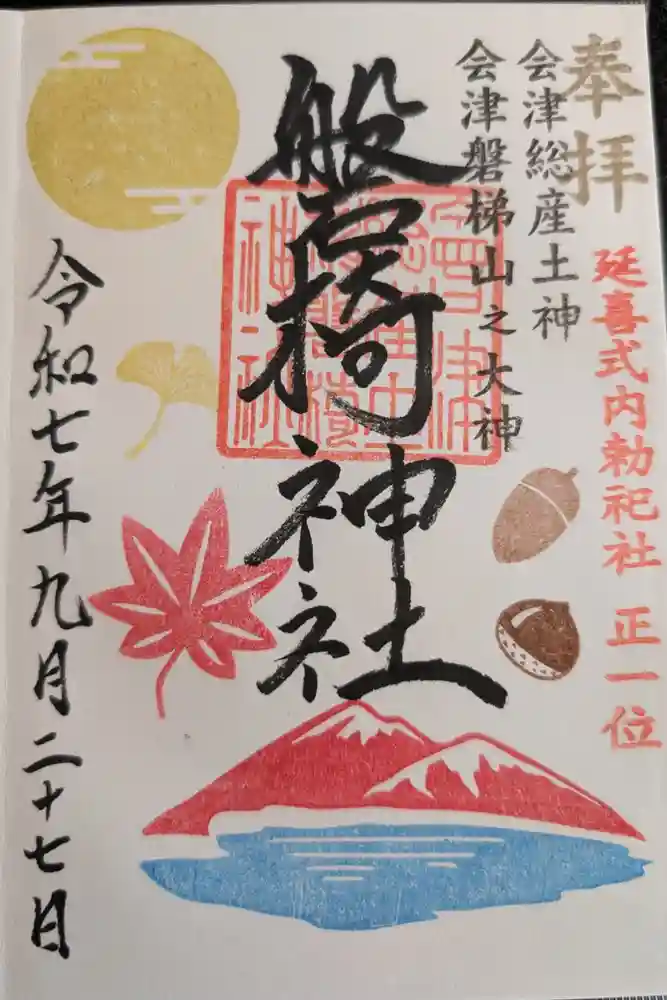 奉拝
延喜式内勅祀社 正一位
会津総産土神
会津磐梯山之大神
磐椅神社
會津
総産土
磐椅
神社
令和七年九月二十七日